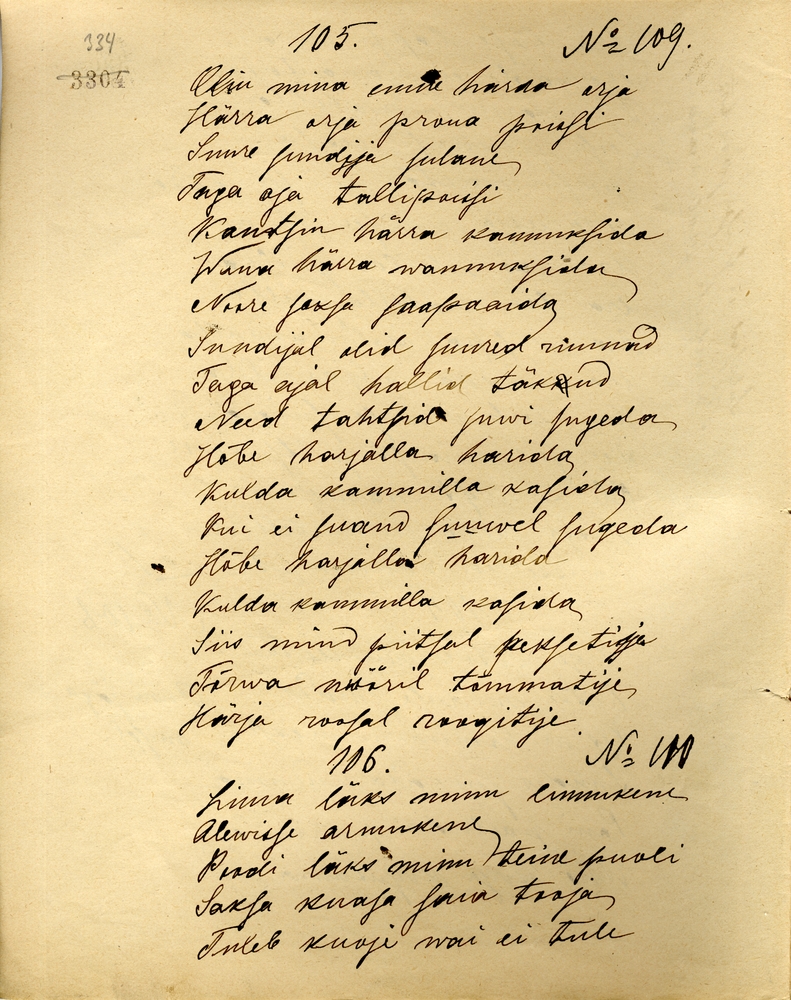 334
3304
105. № 109.
Olin mina enne härra orja
Härra orja proua poissi
Suure sundija sulane
Taga aja tallipoissi
Kantsin härra kannuksida
Wana härra wammuksida
Noore saksa saapaaida
Sundijal olid suured ruunad
Taga ajal hallid täkkud
Need tahtsid suwi sugeda
Hõbe harjalla harida
Kulda kammilla kasida
Kui ei saand suuwel sugeda
Hõbe harjalla harida
Kulda kammilla kasida
Siis mind piitsal peksetije
Tõrwa nööril tõmmatije
Härja roosal roogitije.
106. № 110
Linna läks minu linnukene
Alewisse armukene
Poodi läks minu teine pooli
Saksa kuasa saia tooja
Tuleb kuoje wai ei tule